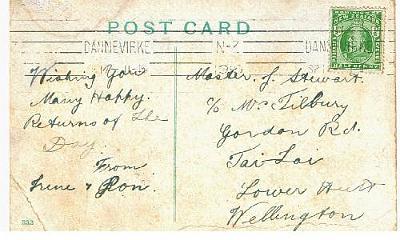 POST CARD
DANNEVIRKE
N-Z
Wishing You
Many Happy.
Returns of the
Day.
From
Irene & Ron.
Master. J. Stewart.
c/o Mrs Tilbury
Gordon Rd.
Tai-Tai
Lower Hutt
Wellington
333